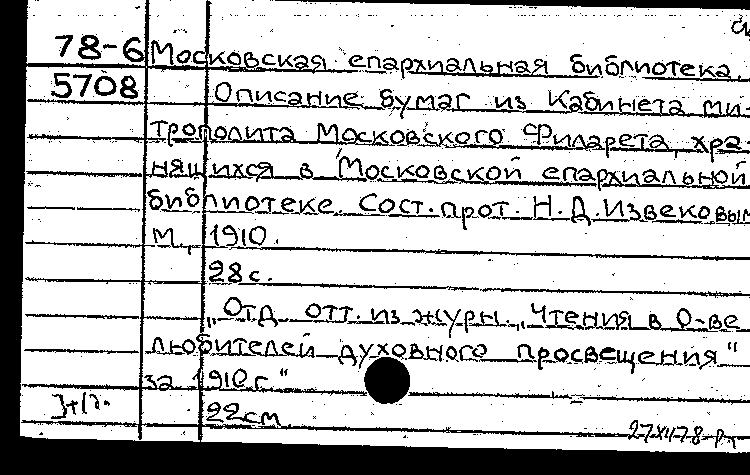 78-6 Московская епархиальная библиотека.
5708 Описание бумаг из Кабинета ми-
трополита Московского Филарета, хра-
нящихся в Московской епархиальной
библиотеке. Сост. прот. Н.Д.Извековым
М., 1910.
28с.
„Отд. отт. из журн. „Чтения в О-ве
любителей духовного просвещения"
за 1910г."
22см